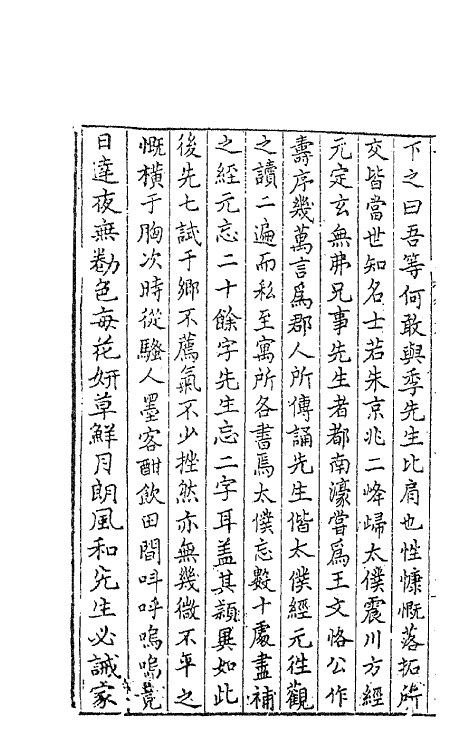 下之曰吾等何敢與季先生比肩也性慷慨落拓所
交皆當世知名士若朱京兆二峰歸太僕震川方經
元定玄無弗兄事先生者都南濠嘗爲王文恪公作
壽序幾萬言爲郡人所傳誦先生偕太僕經元徃觀
之讀二遍而私至寓所各書焉太僕忘數十處盡補
之經元忘二十餘字先生忘二字耳盖其穎異如此
後先七試于鄉不薦氣不少挫然亦無幾微不平之
慨橫于胸次時從騷人墨客酣飲田間叫呼嗚嗚竟
日達夜無勌色每花妍草鮮月朗風和先生必誡家